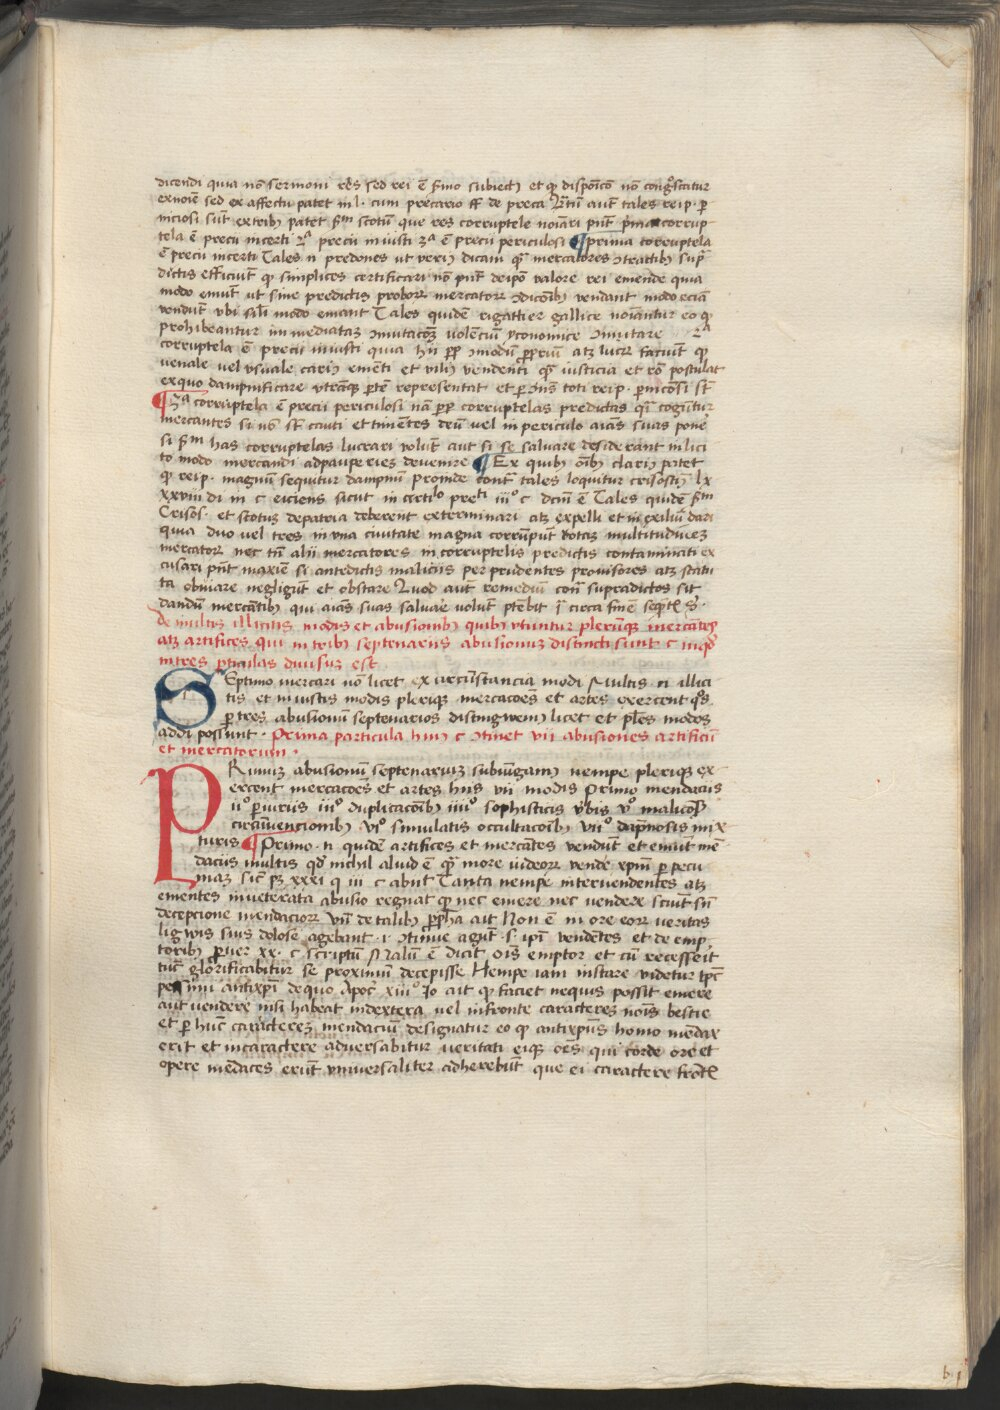 dicendi quia nō sermoni res sed rei ē sermo subiectꝯ et qꝫ disposicō nō cognoscatur
ex noīe sed ex affectu patet in l. cum precario ff de preca Tertiū aut tales reip. ꝑ
niciosi sūt ex tribꝫ patet scdm scotū que res corruptele noīari pnt prima corrup
tela ē precii incerti 2ᵃ precii iniusti 3ᵃ ē precii periculosi ¶ prima corruptela
ē precii incerti Tales n predones ut veriꝯ dicam qm mercatores ꝯtractibꝫ supra
dictis efficiūt qꝫ simplices certificari nō pnt de ipo valore rei emende quia
modo emūt ut sine predictis proborꝫ mercatorꝫ ꝯdicōibꝫ vendant modo eciā
vendūt ubi tali modo emant Tales quidē rigattier gallice noīantur eo qꝫ
prohibeantur immediataꝫ ꝯmutacōꝫ volenciū yconomice ꝯmutare 2ᵃ
corruptela ē precii iniusti quia hii ꝓp ꝯmodū ꝓpriū atqꝫ lucrꝫ faciūt qꝫ
venale vel usuale cariꝯ ementi et viliꝯ vendenti qm iusticia et rō postulat
ex quo dampnificare utramqꝫ ꝑtē representat et ꝑ ꝯns toti reip. ꝑniciosi st
¶ 3ᵃ corruptela ē precii periculosi nā ꝓp corruptelas predictas qm cogūtur
mercantes si nō st cauti et timētes deū vel in periculo aīas suas pone
si scdm has corruptelas lucrari volūt aut si se salvare desiderant in lici
to modo mercandi ad pauperiem devenire ¶ Ex quibꝫ oībꝫ clariꝯ patet
qꝫ reip. magnū sequitur dampnū proinde contra tales loquitur crisostiꝯ lx
xxviii di in c eiciens sicut in certilo preti iiiᵒ c dcm ē Tales quidē scdm
Crisos. et scotus de patria deberent exterminari atqꝫ expelli et in exiliū dari
quia duo vel tres in una civitate magna corrūpūt totam multitudineꝫ
mercatorꝫ nec tn alii mercatores in corruptelis predictis contaminati ex
cusari pnt maxīe si antedictis maliciis per prudentes provisores atqꝫ statu
ta obviare negligūt et obstare Quod aut remediū contra supradictos sit
dandū mercātibꝫ qui aīas suas salvare volūt ptebit circa finē
de multis illicitis modis et abusionibꝫ quibꝫ utuntur plerūqꝫ mercātes
atqꝫ artifices qui in tribꝫ septenariis abusionuꝫ distincti sunt c
in tres ꝑticulas divisuꝫ est
SEptimo mercari nō licet ex circūstancia modi Multis n illici
tis et iniustis modis pleriqꝫ mercacōes et artes exercent qs
ꝑ tres abusionū septenarios distingwemꝯ licet et ples modos
addi possunt. Prima particula huiꝯ c ꝯtinet vii abusiones artificū
et mercatorum.
PRimuꝫ abusionū septenariuꝫ subiūgamꝯ nempe pleriqꝫ ex
ercent mercacōes et artes hiis vii modis Primo mendaciis
iiᵒ ꝑiuriis iiiᵒ duplicacōibꝫ iiiiᵒ sophisticis vbis vᵒ malicosis
circūvencionibꝫ viᵒ simulatis occultacōibꝫ viiᵒ dāpnosis mix
turis ¶ Primo n quidē artifices et mercātes vendūt et emūt mē
daciis multis qd nichil aliud ē qm more iudeorꝫ vende xpm ꝑ pecu
niaꝫ sic pꝫ xxxi q iii c abnt Tanta nempe inter vendentes atqꝫ
ementes inveterata abusio regnat qꝫ nec emere nec vendere sciūt sn
decepcione mendaciorꝫ vn de talibꝫ ꝓpha ait Non ē in ore eorꝫ veritas
ligwis suis dolose agebant .i. ꝯtinue agūt .s. ipi vendētes et de emp
toribꝫ ꝓver xx. c scriptū Malū ē dicit ois emptor et cū recesserit
tūc glorificabitur se proximū decepisse Nempe iam instare videtur tpꝯ
pessimi antixpi de quo Apoc xiiiᵒ Jo ait qꝫ faciet nequis possit emere
aut vendere nisi habeat in dextera vel in fronte caracteres noīs bestie
et ꝑ hūc caractereꝫ mendaciū designatur eo qꝫ antixpūs homo mēdax
erit et in caractere adversabitur veritati eiqꝫ oēs qui corde ore et
opere mēdaces erūt universaliter adherebūt que ei caractere
b 1